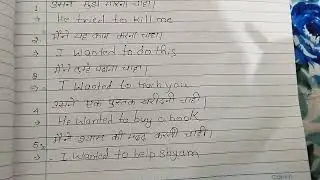 1 उसने मुझे मारना चाहा।
→ He tried to kill me
2 मैंने यह काम करना चाहा।
→ I Wanted to do this
3 मैंने तुम्हें पढ़ाना चाहा।
→ I Wanted to teach you
4 उसने एक पुस्तक खरीदनी चाही।
→ He Wanted to buy a book
5 मैंने श्याम की मदद करनी चाही।
→ I Wanted to help Shyam